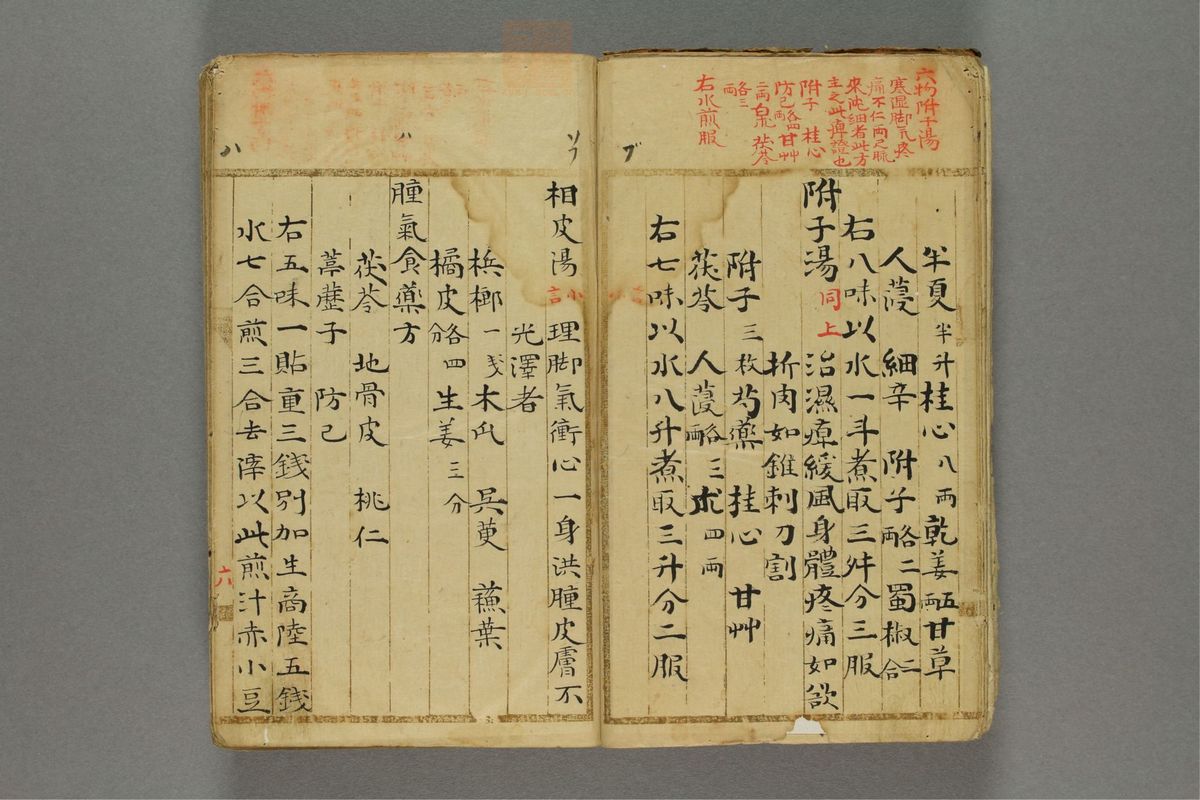 六物附子湯
寒湿脚気疼
痛不仁両足脉
来沈細者此方
主之此痺證也
附子 桂心
防已各四両 甘艸
二両 白朮 茯苓
各三両
右水煎服
半夏半升 桂心八両 乾姜五両 甘草
人葠 細辛 附子各二両 蜀椒二合
右八味以水一斗煮取三舛分三服
附子湯 同上 治濕痺緩風身體疼痛如欲
折肉如錐刺刀割
附子三枚 芍藥 桂心 甘艸
茯苓 人葠各三両 朮四両
右七味以水八升煮取三升分二服
相皮湯 理脚氣衝心一身洪腫皮膚不
光澤者
梹榔一戔 木瓜 呉萸 蘓葉
橘皮各四分 生姜三分
腫氣食藥方
茯苓 地骨皮 桃仁
葶藶子 防已
右五味一貼重三錢別加生商陸五錢
水七合煎三合去滓以此煎汁赤小豆
六